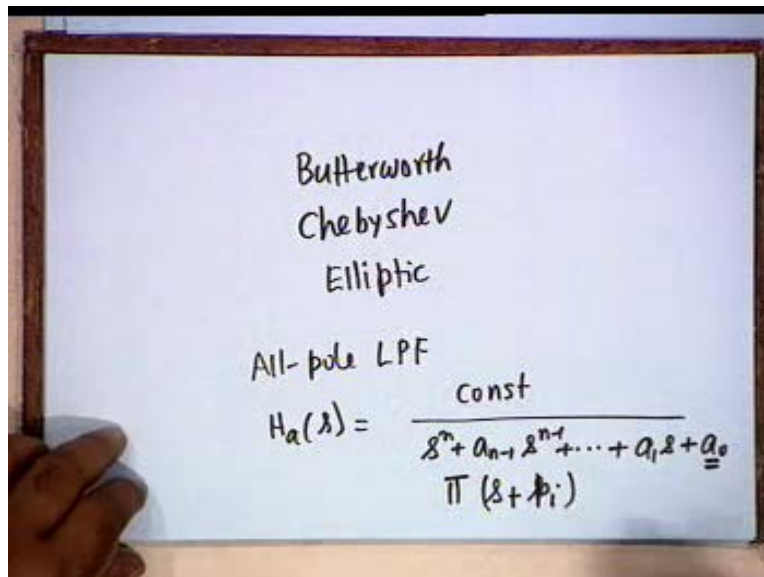 Butterworth
Chebyshev
Elliptic
All-pole LPF
const
Ha(s) =
s^n + a_{n-1} s^{n-1} + ... + a_1 s + a_0
Π (s + p_i)